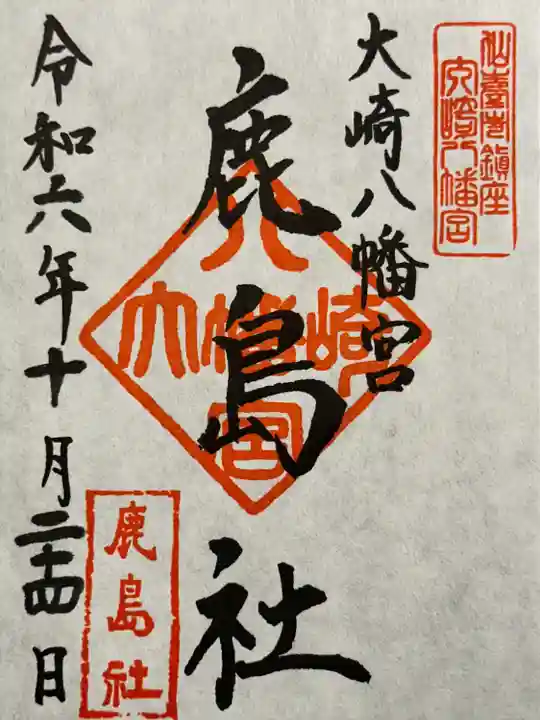 仙臺市鎮座
大崎八幡宮
大崎八幡宮
鹿島社
八
大幡崎
宮
鹿島社
令和六年十月二十四日